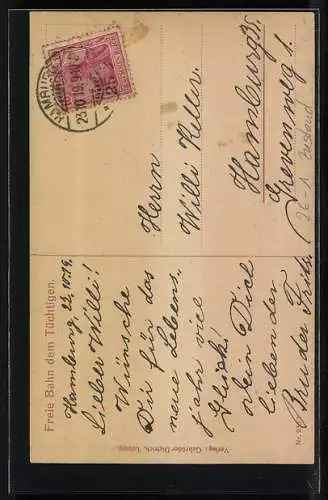 Freie Bahn dem Tüchtigen.
Hamburg, 22.10.19.
Lieber Willi!
Wünsche
Dir für das
neue Lebens-
jahr viel
Glück!
Dich
liebender
Bruder Fritz.
Verlag: Gebrüder Dietrich, Leipzig.
HAMBURG
23.10.19.
Herrn
Willi Keller.
Hamburg 31.
Grevenweg 1.